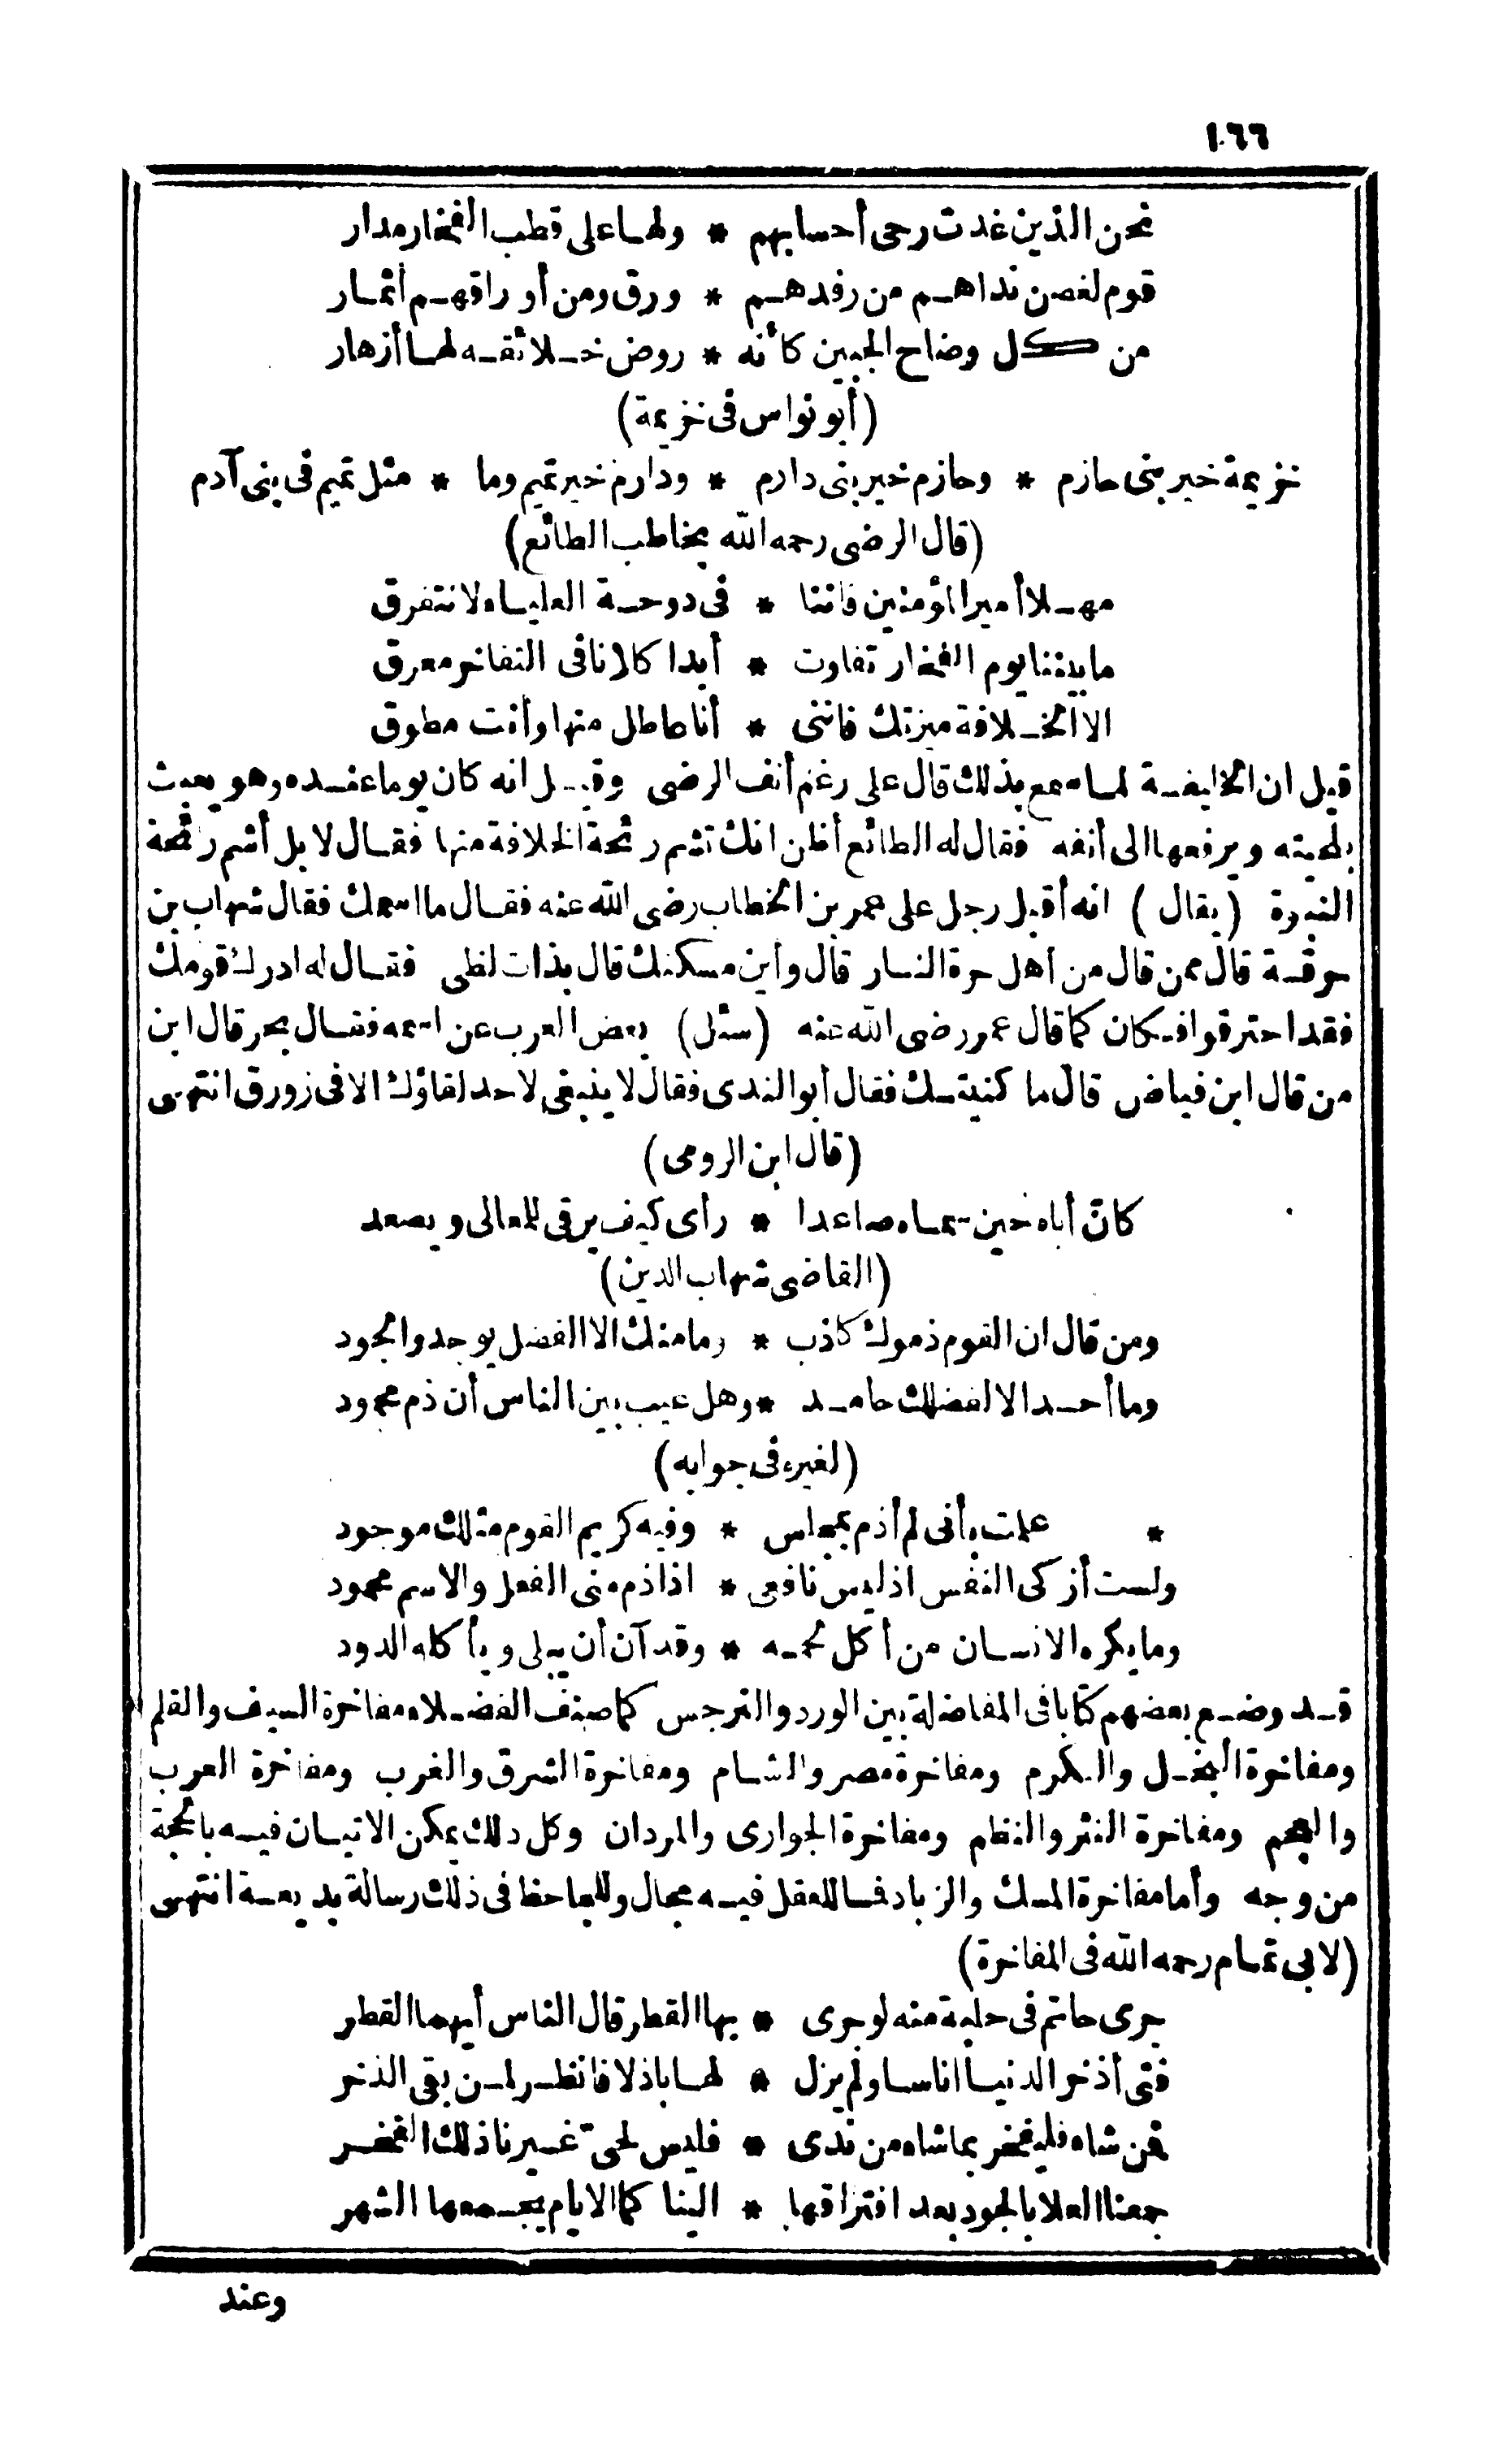 ١٦٦
نحن الذين غدت رحى أحسابهم * ولها على قطب الفخار مدار
قوم لغصن نداهم من رفدهم * ورق ومن أوراقهم أثمار
من كل وضاح الجبين كأنه * روض خلائقه لها أزهار
(أبو نواس فى خزيمة)
خزيمة خير بنى حازم * وحازم خير بنى دارم * ودارم خير تميم وما * مثل تميم فى بنى آدم
(قال الرضى رحمه الله يخاطب الطائع)
مهلا أمير المؤمنين فاننا * فى دوحة العلياء لا نتفرق
ما بيننا يوم الفخار تفاوت * أبدا كلانا فى التفاخر معرق
الا الخلافة ميزتك فاننى * أنا عاطل منها وأنت مطوق
قيل ان الخليفة لما سمع بذلك قال على رغم أنف الرضى وقيل انه كان يوما عنده وهو يعبث
بلحيته ويرفعها الى أنفه فقال له الطائع أظن انك تشم رئحة الخلافة منها فقال لا بل أشم رئحة
النبوة (يقال) انه أقبل رجل على عمر بن الخطاب رضى الله عنه فقال ما اسمك فقال شهاب بن
حرقة قال ممن قال من أهل حرة النار قال وأين مسكنك قال بذات لظى فقال له ادرك قومك
فقد احترقوا فكان كما قال عمر رضى الله عنه (سئل) بعض العرب عن اسمه فقال بحر قال ابن
من قال ابن فياض قال ما كنيتك فقال أبو الندى فقال لا ينبغى لاحد لقاؤك الا فى زورق انتهى
(قال ابن الرومى)
كانّ أباه حين سماه صاعدا * رأى كيف يرقى للمعالى ويصعد
(القاضى شهاب الدين)
ومن قال ان القوم ذموك كاذب * وما منك الا الفضل يوجد والجود
وما أحد الا لفضلك حامد * وهل عيب بين الناس أن ذم محمود
(لغيره فى جوابه)
* علمت بأنى لم أذم بمجلس * وفيه كريم القوم مثلك موجود
ولست أزكى النفس اذ ليس نافعى * اذا ذم منى الفعل والاسم محمود
وما يكره الانسان من أكل لحمه * وقد آن أن يبلى ويأكله الدود
قد وضع بعضهم كتابا فى المفاضلة بين الورد والنرجس كما صنف الفضلاء مفاخرة السيف والقلم
ومفاخرة البخل والكرم ومفاخرة مصر والشام ومفاخرة الشرق والغرب ومفاخرة العرب
والعجم ومفاخرة النثر والنظم ومفاخرة الجوارى والمردان وكل ذلك يمكن الاتيان فيه بالحجة
من وجه وأما مفاخرة المسك والزباد فما للعقل فيه مجال وللجاحظ فى ذلك رسالة بديعة انتهى
(لابى تمام رحمه الله فى المفاخرة)
جرى حاتم فى حلبة منه لو جرى * بها القطر قال الناس أيهما القطر
فتى أذخر الدنيا اناسا ولم يزل * لها باذلا فانظر لمن بقى الذخر
فمن شاء فليفخر بما شاء من ندى * فليس لحىّ غيرنا ذلك الفخر
جمعنا العلا بالجود بعد افتراقها * الينا كما الايام يجمعها الشهر
وعند